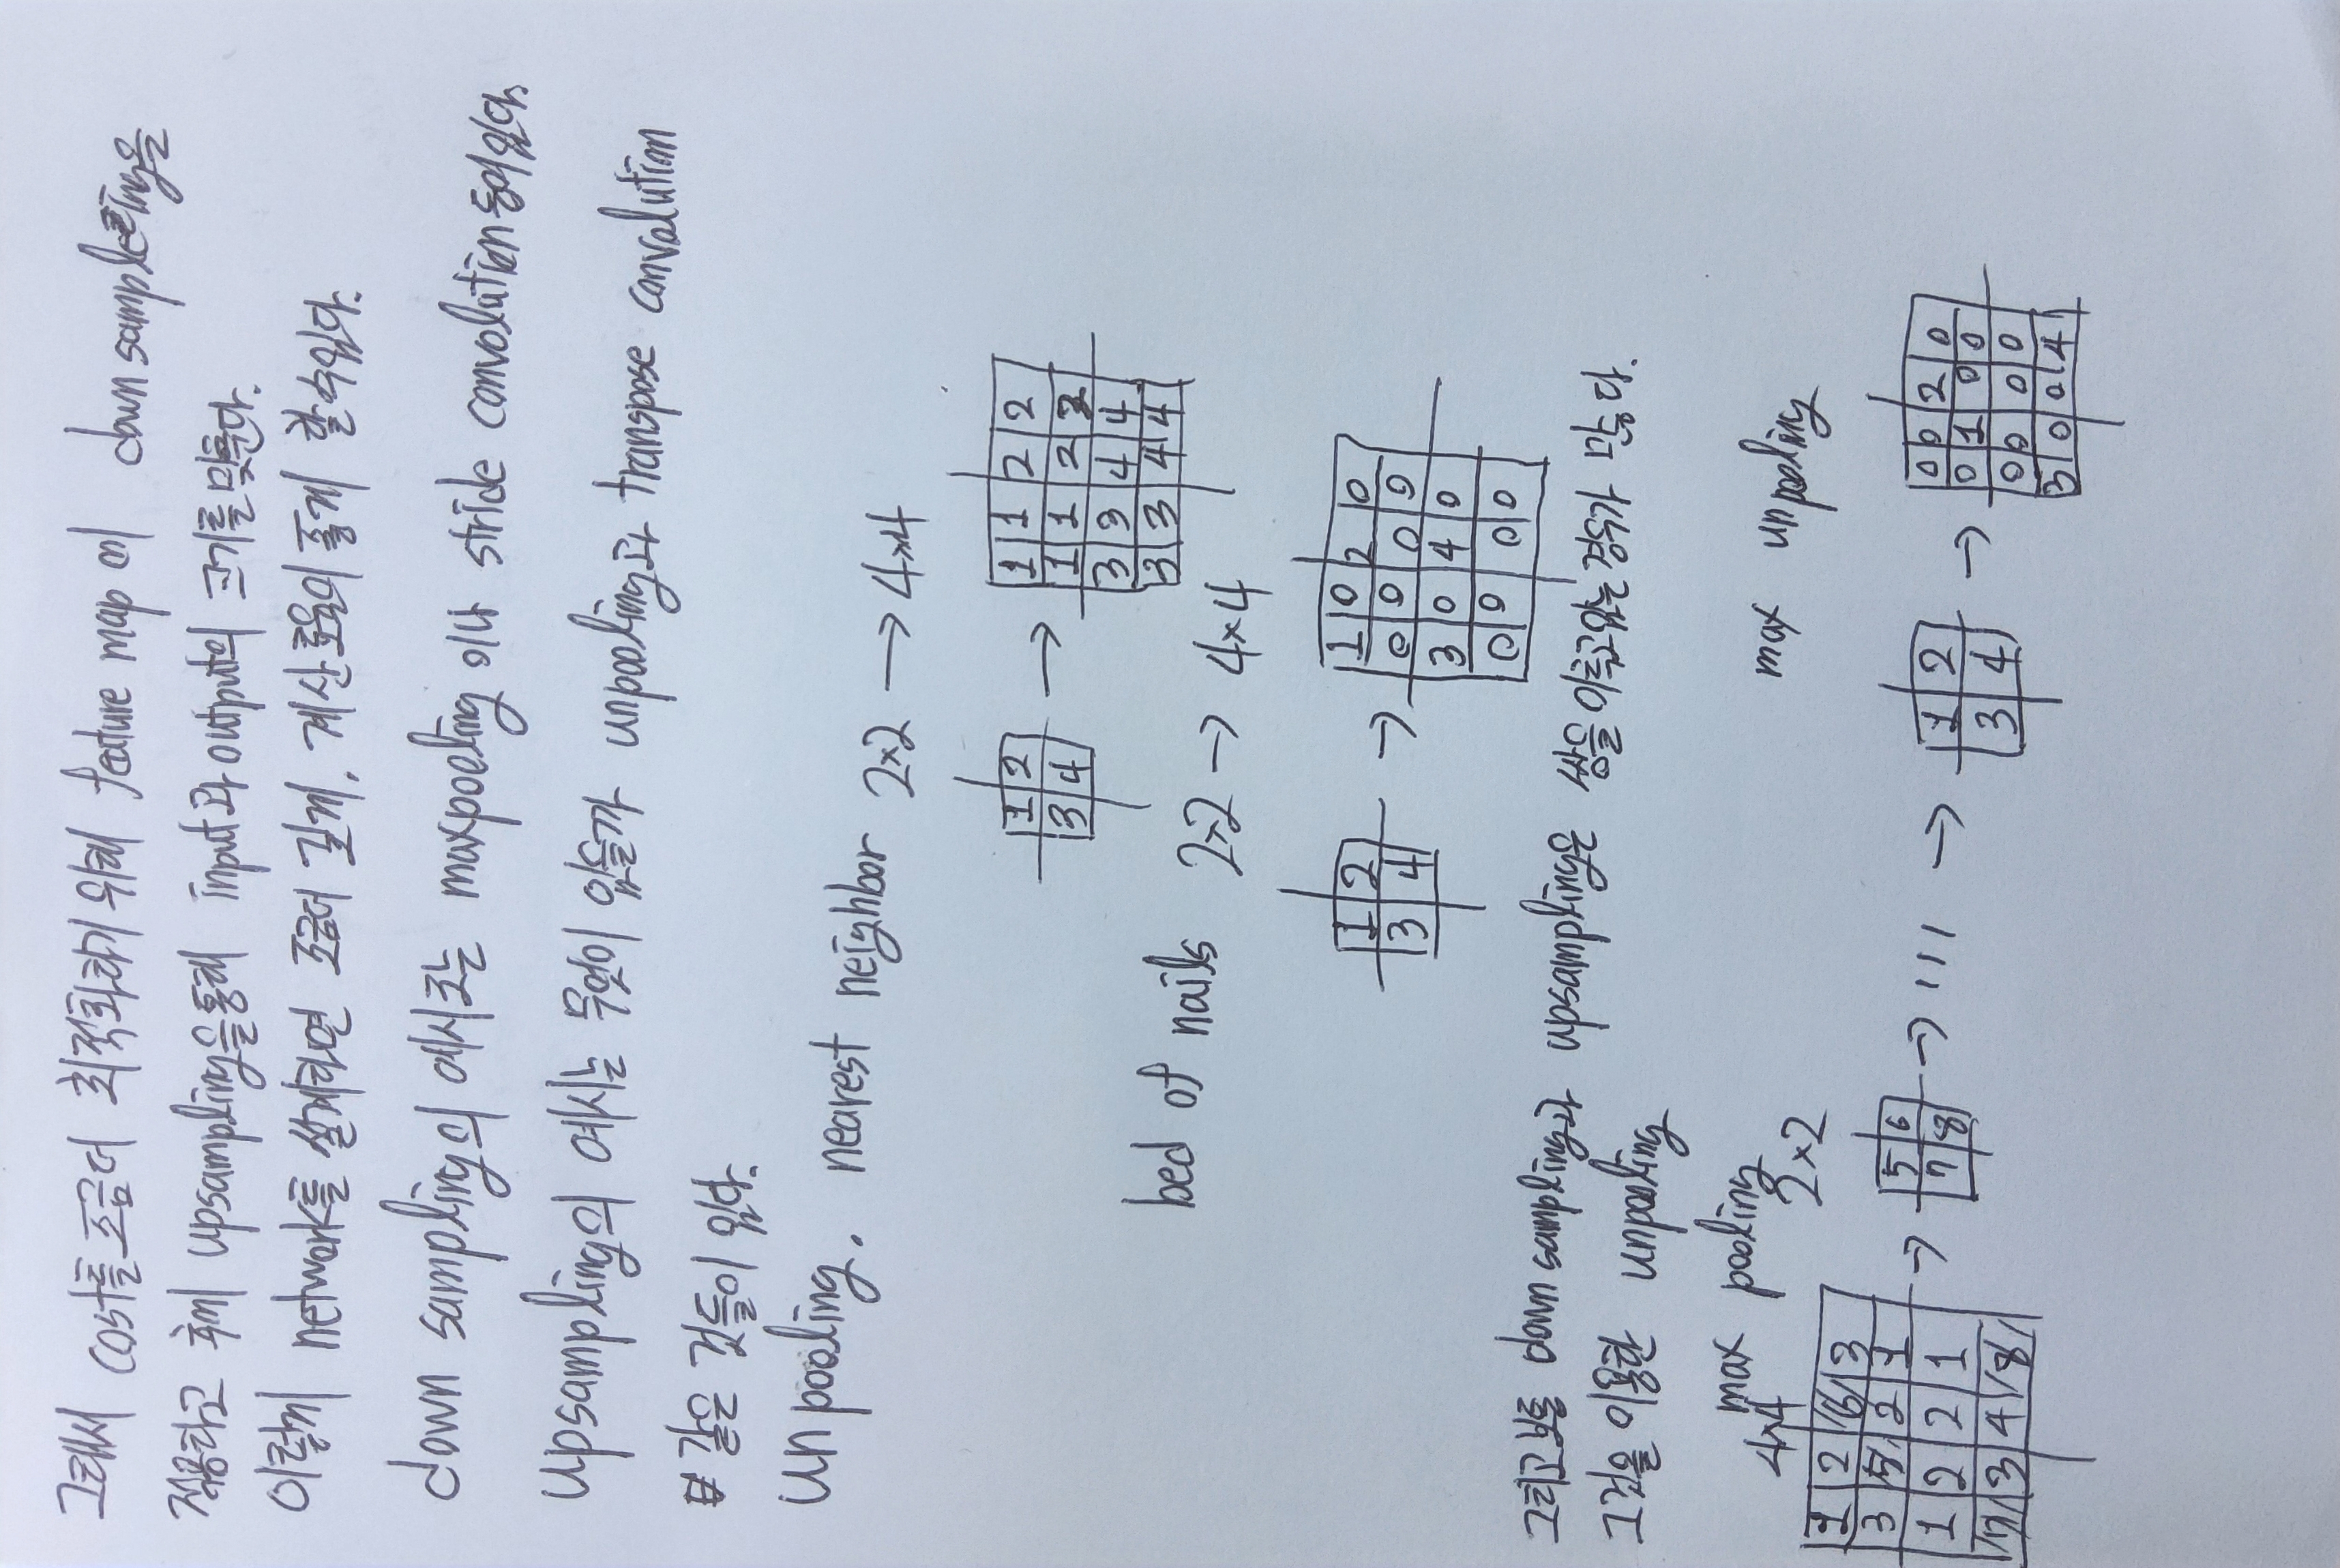 그래서 cost를 조금더 최적화하기 위해 feature map에 down sampleing을
적용하고 후에 upsampling을 통해 input과 output의 크기를 맞춘다.
이렇게 network를 설계하면 조금더 깊게, 계산 효율이 좋게 할 수 있다.
down sampling의 예시로는 maxpooling 이나 stride convolution 등이 있다.
upsampling의 예시는 무엇이 있을까 unpooling과 transpose convolution
같은 것들이 있다.
un pooling. nearest neighbor 2×2 → 4×4
1 2 → 1 1 2 2
3 4 1 1 2 2
3 3 4 4
3 3 4 4
bed of nails 2×2 → 4×4
1 2 → 1 0 2 0
3 4 0 0 0 0
3 0 4 0
0 0 0 0
그리고 보통 down sampling과 upsampling은 쌍을 이루고 있는 경우가 많다.
그것을 이용한 unpooling
max pooling max unpooling
4×4 2×2
1 2 6 3
3 5 2 1
1 2 2 1
7 3 4 8
→ 5 6
7 8
→ ... → 1 2
3 4
→ 0 0 2 0
0 1 0 0
0 0 0 0
3 0 0 4